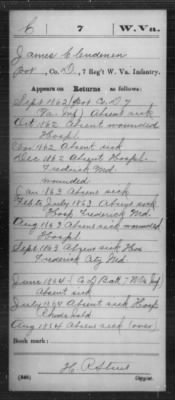 C 7 W.Va.
James Clendenen
Pvt, Co. D, 7 Reg't W. Va. Infantry.
Appears on Returns as follows:
Sept 1862 (Pvt Co D 7
Va. Inf) Absent sick
Oct 1862 Absent wounded
Hospl.
Nov 1862 Absent sick
Dec 1862 Absent Hospl.
Frederick Md.
wounded
Jan 1863 Absent sick
Feb to July 1863. Absent sick
Hosp Frederick Md.
Aug 1863 Absent sick wounded
Hospl
Sept 1863 Absent sick Hos
Frederick City Md
June 1864 (Co D Batt. W Va Inf)
Absent sick
July 1864 Absent sick Hosp
Aug 1864 Absent sick (over)
Book mark:
(546) Copyist.